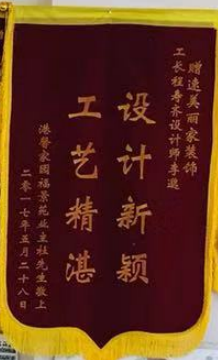 赠速美丽家装饰
工长程寿齐设计师李遥
设计新颖
工艺精湛
港馨家园福景苑业主社先生敬上
二零一七年五月二十八日